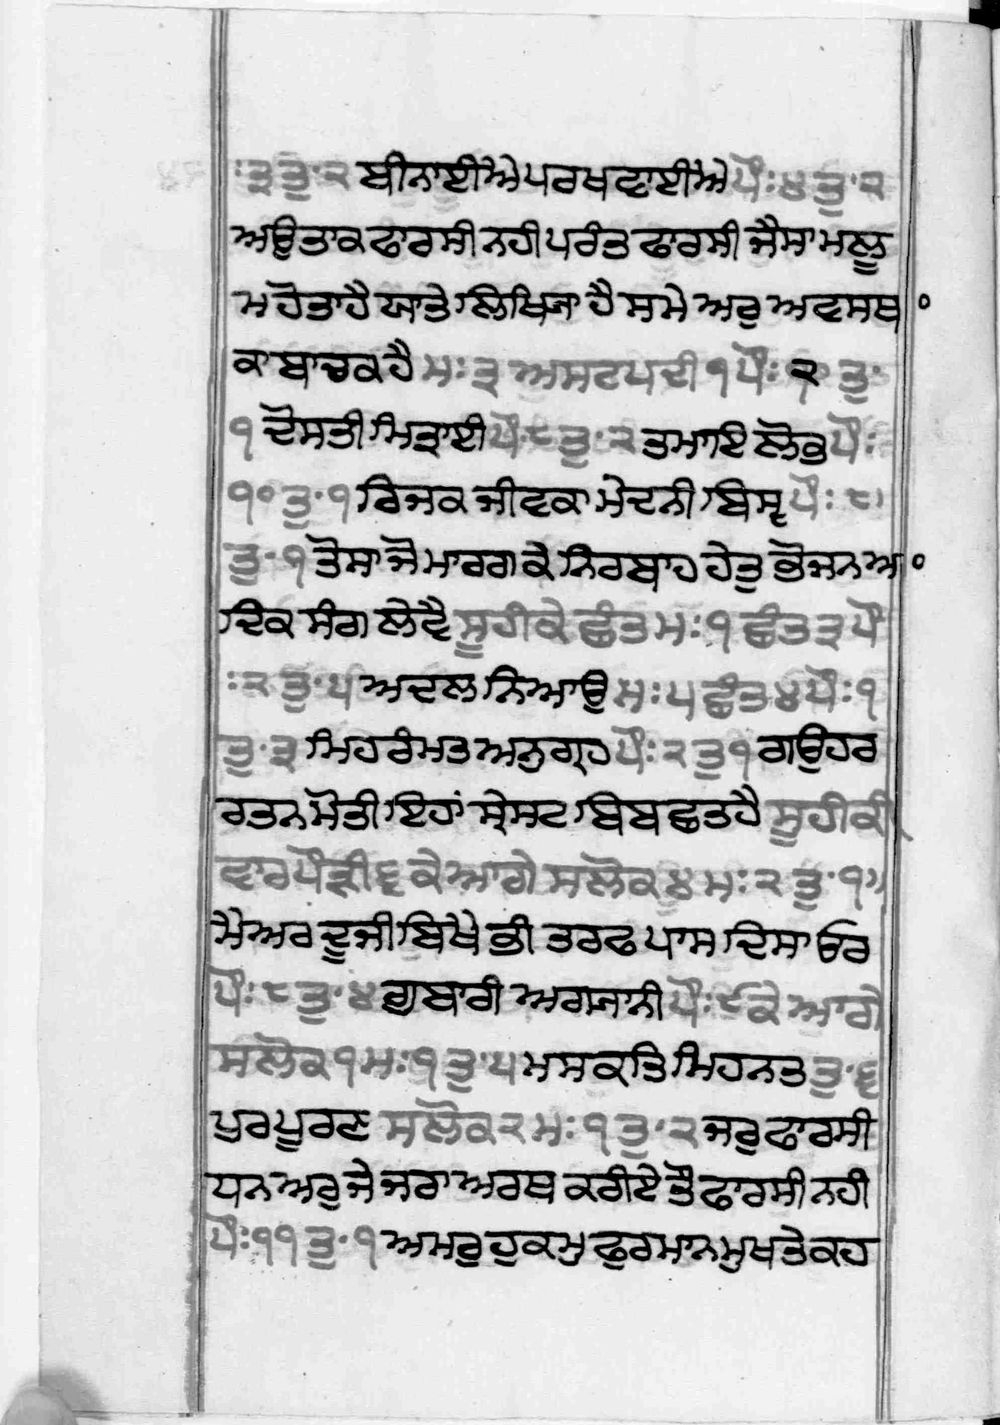 :੩ ਤੁ·੨ ਬੀਨਾਈਐ ਪਰਖਵਾਈਐ ਪੌ:੪ ਤੁ·੨
ਅਉਤਾਕ ਫਾਰਸੀ ਨਹੀ ਪਰੰਤ ਫਾਰਸੀ ਜੈਸਾ ਮਲੂ
ਮ ਹੋਤਾ ਹੈ ਯਾਤੇ ਲਿਖਿਆ ਹੈ ਸਮੇ ਅਰੁ ਅਵਸਥ ੦
ਕਾ ਬਾਚਕ ਹੈ ਮ:੩ ਅਸਟਪਦੀ ੧ ਪੌ: ੨ ਤੁ·
੧ ਦੋਸਤੀ ਮਿਤ੍ਰਾਈ ਪੌ·੮ ਤੁ·੨ ਤਮਾਇ ਲੋਭੁ ਪੌ:
੧੦ ਤੁ·੧ ਰਿਜਕ ਜੀਵਕਾ ਮੇਦਨੀ ਬਿਸ੍ਵ ਪੌ: ੮
ਤੁ·੧ ਤੋਸਾ ਜੋ ਮਾਰਗ ਕੇ ਨਿਰਬਾਹ ਹੇਤੁ ਭੋਜਨ ਅ ੦
ਦਿਕ ਸੰਗ ਲੇਵੈ ਸੂਹੀ ਕੇ ਛੰਤ ਮ:੧ ਛੰਤ ੩ ਪੌ
:੨ ਤੁ·੫ ਅਦਲ ਨਿਆਉ ਮ:੫ ਛੰਤ ੪ ਪੌ:੧
ਤੁ·੩ ਮਿਹਰੰਮਤ ਅਨੁਗ੍ਰਹ ਪੌ:੨ ਤੁ ੧ ਗਉਹਰ
ਰਤਨ ਮੋਤੀ ਇਹਾਂ ਸ੍ਰੇਸਟ ਬਿਬਛਤ ਹੈ ਸੂਹੀ ਕੀ
ਵਾਰ ਪੌੜੀ ੬ ਕੇ ਆਗੇ ਸਲੋਕ ੪ ਮ:੨ ਤੁ·੧
ਮੈ ਅਰ ਦੂਜੀ ਬਿਖੈ ਭੀ ਤਰਫ ਪਾਸ ਦਿਸਾ ਓਰ
ਪੌ:੮ ਤੁ·੪ ਗੁਬਾਰੀ ਅਗਯਾਨੀ ਪੌ:੯ ਕੇ ਆਗੇ
ਸਲੋਕ ੧ ਮ:੧ ਤੁ·੫ ਮਸਕਤਿ ਮਿਹਨਤ ਤੁ·੬
ਪੁਰ ਪੂਰਣ ਸਲੋਕ ੨ ਮ:੧ ਤੁ·੨ ਜਰੁ ਫਾਰਸੀ
ਧਨ ਅਰੁ ਜੇ ਜਰਾ ਅਰਥ ਕਰੀਏ ਤੌ ਫਾਰਸੀ ਨਹੀ
ਪੌ:੧੧ ਤੁ·੧ ਅਮਰੁ ਹੁਕਮੁ ਫੁਰਮਾਨ ਮੁਖ ਤੇ ਕਹ